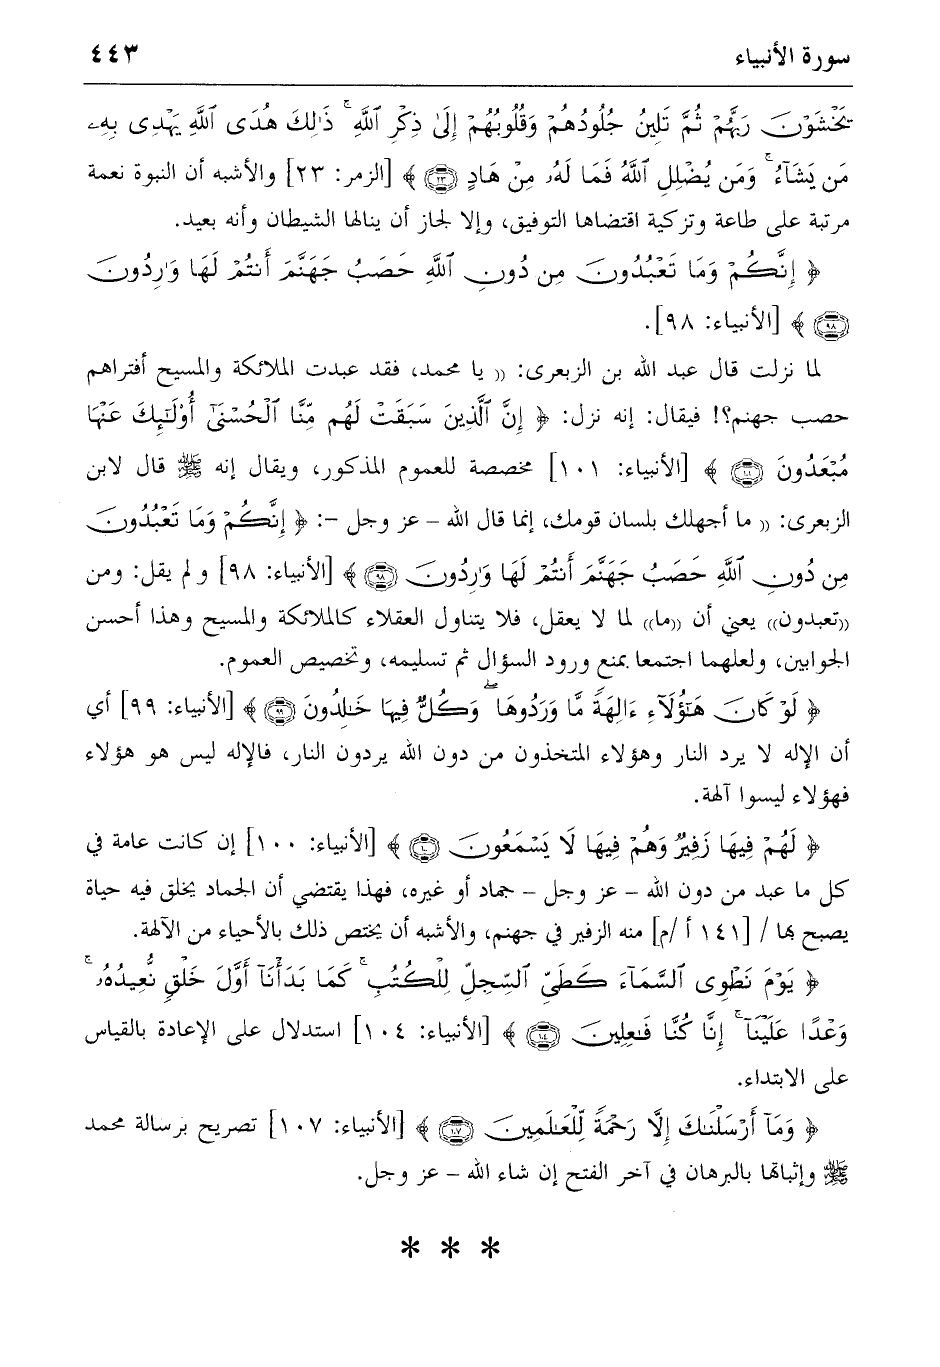 سورة الأنبياء ٤٤٣
تَخْشَوْنَ رَبَّهُمْ ثُمَّ تَلِينُ جُلُودُهُمْ وَقُلُوبُهُمْ إِلَىٰ ذِكْرِ ٱللَّهِ ۚ ذَٰلِكَ هُدَى ٱللَّهِ يَهْدِى بِهِۦ
مَن يَشَآءُ ۚ وَمَن يُضْلِلِ ٱللَّهُ فَمَا لَهُۥ مِنْ هَادٍ ﴿٢٣﴾ ﴾ [الزمر: ٢٣] والأشبه أن النبوة نعمة
مرتبة على طاعة وتزكية اقتضاها التوفيق، وإلا لجاز أن ينالها الشيطان وأنه بعيد.
﴿ إِنَّكُمْ وَمَا تَعْبُدُونَ مِن دُونِ ٱللَّهِ حَصَبُ جَهَنَّمَ أَنتُمْ لَهَا وَٰرِدُونَ
﴿٩٨﴾ ﴾ [الأنبياء: ٩٨].
لما نزلت قال عبد الله بن الزبعرى: (( يا محمد، فقد عبدت الملائكة والمسيح أفتراهم
حصب جهنم؟! فيقال: إنه نزل: ﴿ إِنَّ ٱلَّذِينَ سَبَقَتْ لَهُم مِّنَّا ٱلْحُسْنَىٰٓ أُوْلَٰٓئِكَ عَنْهَا
مُبْعَدُونَ ﴿١٠١﴾ ﴾ [الأنبياء: ١٠١] مخصصة للعموم المذكور، ويقال إنه ﷺ قال لابن
الزبعرى: (( ما أجهلك بلسان قومك، إنما قال الله - عز وجل -: ﴿ إِنَّكُمْ وَمَا تَعْبُدُونَ
مِن دُونِ ٱللَّهِ حَصَبُ جَهَنَّمَ أَنتُمْ لَهَا وَٰرِدُونَ ﴿٩٨﴾ ﴾ [الأنبياء: ٩٨] و لم يقل: ومن
((تعبدون)) يعني أن ((ما)) لما لا يعقل، فلا يتناول العقلاء كالملائكة والمسيح وهذا أحسن
الجوابين، ولعلهما اجتمعا بمنع ورود السؤال ثم تسليمه، وتخصيص العموم.
﴿ لَوْ كَانَ هَٰٓؤُلَآءِ ءَالِهَةً مَّا وَرَدُوهَا ۖ وَكُلٌّ فِيهَا خَٰلِدُونَ ﴿٩٩﴾ ﴾ [الأنبياء: ٩٩] أي
أن الإله لا يرد النار وهؤلاء المتخذون من دون الله يردون النار، فالإله ليس هو هؤلاء
فهؤلاء ليسوا آلهة.
﴿ لَهُمْ فِيهَا زَفِيرٌ وَهُمْ فِيهَا لَا يَسْمَعُونَ ﴿١٠٠﴾ ﴾ [الأنبياء: ١٠٠] إن كانت عامة في
كل ما عبد من دون الله - عز وجل - جماد أو غيره، فهذا يقتضي أن الجماد يخلق فيه حياة
يصبح بها / [١٤١ أ /م] منه الزفير في جهنم، والأشبه أن يختص ذلك بالأحياء من الآلهة.
﴿ يَوْمَ نَطْوِى ٱلسَّمَآءَ كَطَىِّ ٱلسِّجِلِّ لِلْكُتُبِ ۚ كَمَا بَدَأْنَآ أَوَّلَ خَلْقٍ نُّعِيدُهُۥ ۚ
وَعْدًا عَلَيْنَآ ۚ إِنَّا كُنَّا فَٰعِلِينَ ﴿١٠٤﴾ ﴾ [الأنبياء: ١٠٤] استدلال على الإعادة بالقياس
على الابتداء.
﴿ وَمَآ أَرْسَلْنَٰكَ إِلَّا رَحْمَةً لِّلْعَٰلَمِينَ ﴿١٠٧﴾ ﴾ [الأنبياء: ١٠٧] تصريح برسالة محمد
ﷺ وإثباتها بالبرهان في آخر الفتح إن شاء الله - عز وجل.
* * *